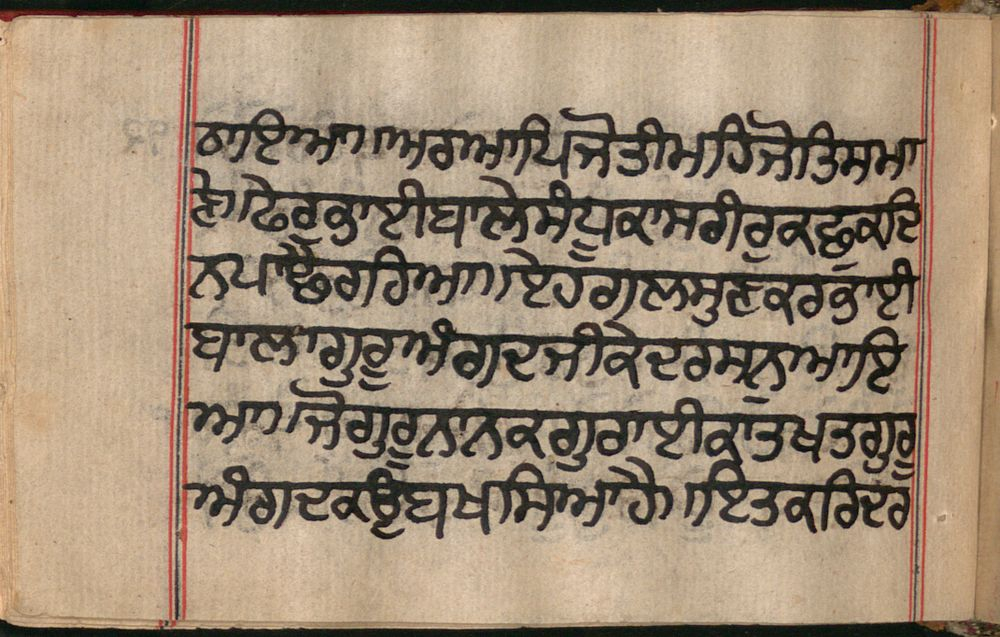 ਠਾਇਆ॥ਅਰਆਪਿਜੋਤੀਮਹਿਜੋਤਿਸਮਾ
ਣੇ।ਫੇਰੁਭਾਈਬਾਲੇਸੰਧੂਕਾਸਰੀਰੁਕਛੁਕਦਿ
ਨਪਾਛੈਰਹਿਆ॥ਏਹਗਲਸੁਣਕਰਭਾਈ
ਬਾਲਾਗੁਰੂਅੰਗਦਜੀਕੇਦਰਸਨੁਆਇ
ਆ॥ਜੋਗੁਰੂਨਾਨਕਗੁਰਾਈਕਾਤਖਤਗੁਰੂ
ਅੰਗਦਕਉਬਖਸਿਆਹੈ॥ਇਤਕਰਿਦਰ